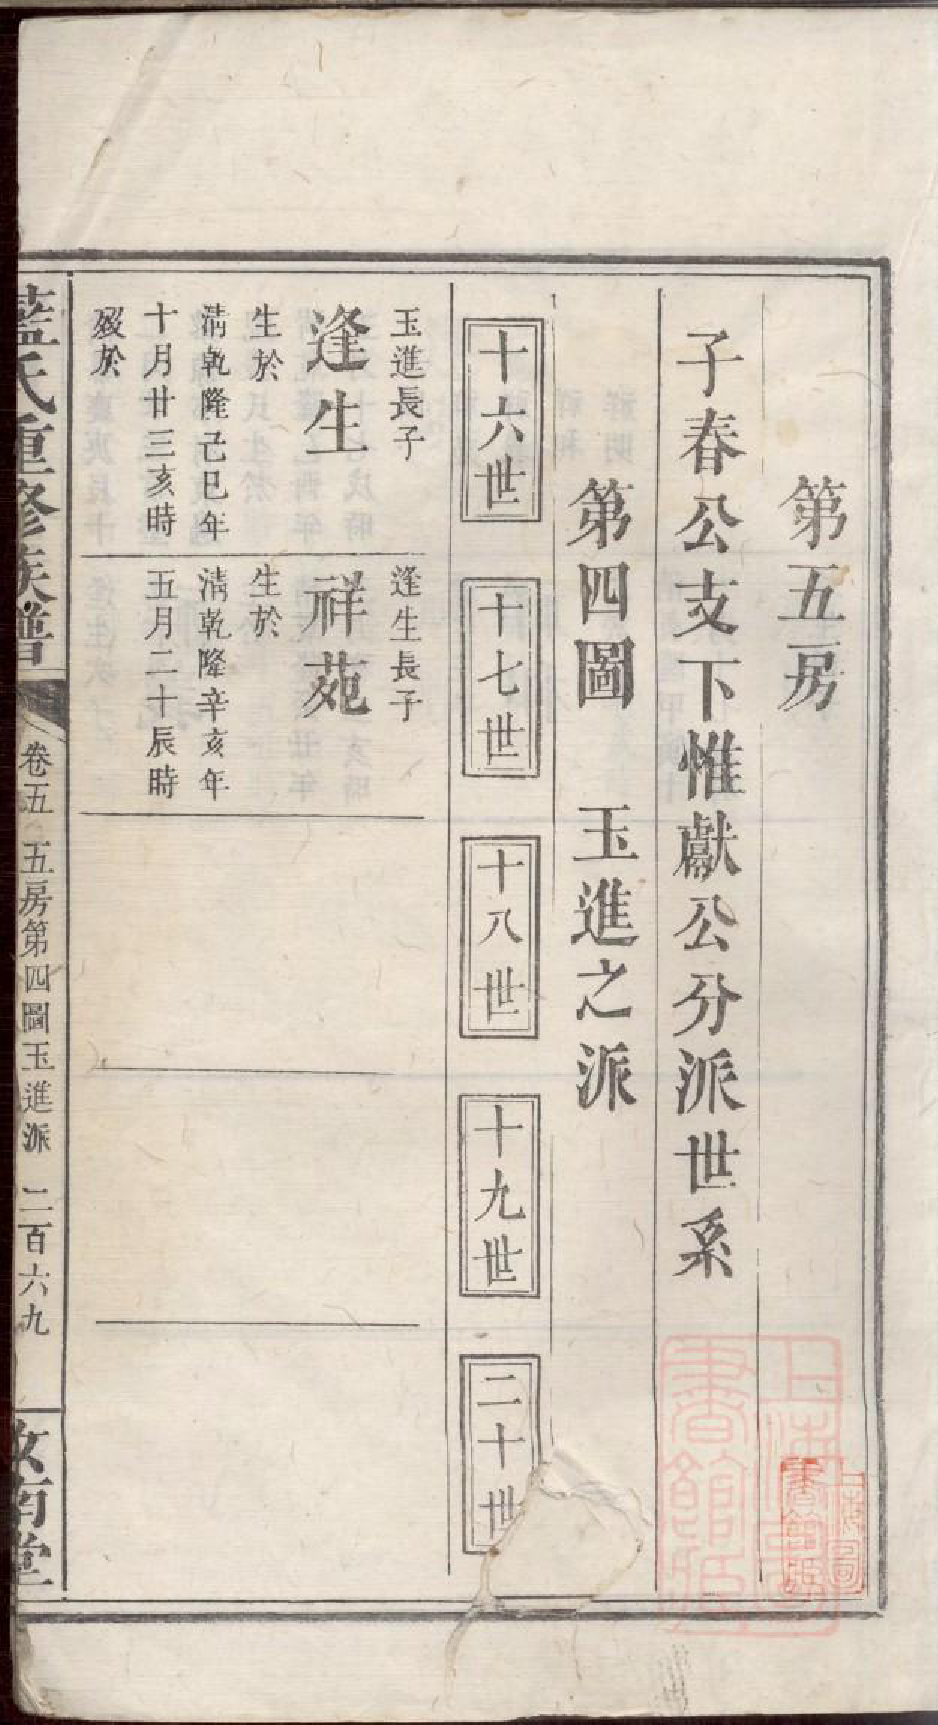 第五房
子春公支下惟獻公分派世系
第四圖　玉進之派
十六世
十七世
十八世
十九世
二十世
玉進長子
逢生
生於
清乾隆己巳年
十月廿三亥時
歿於
逢生長子
祥苑
生於
清乾隆辛亥年
五月二十辰時
藍氏重修族譜
卷五　五房第四圖玉進派　二百六九
汝南堂
上海圖書館藏
上海圖書館藏